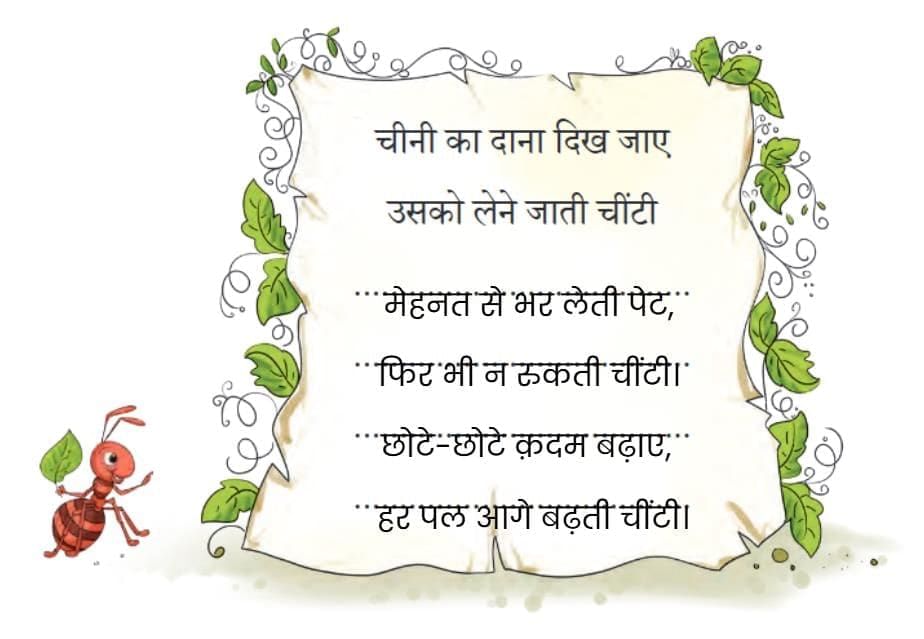 चीनी का दाना दिख जाए
उसको लेने जाती चींटी
मेहनत से भर लेती पेट,
फिर भी न रुकती चींटी।
छोटे-छोटे क़दम बढ़ाए,
हर पल आगे बढ़ती चींटी।